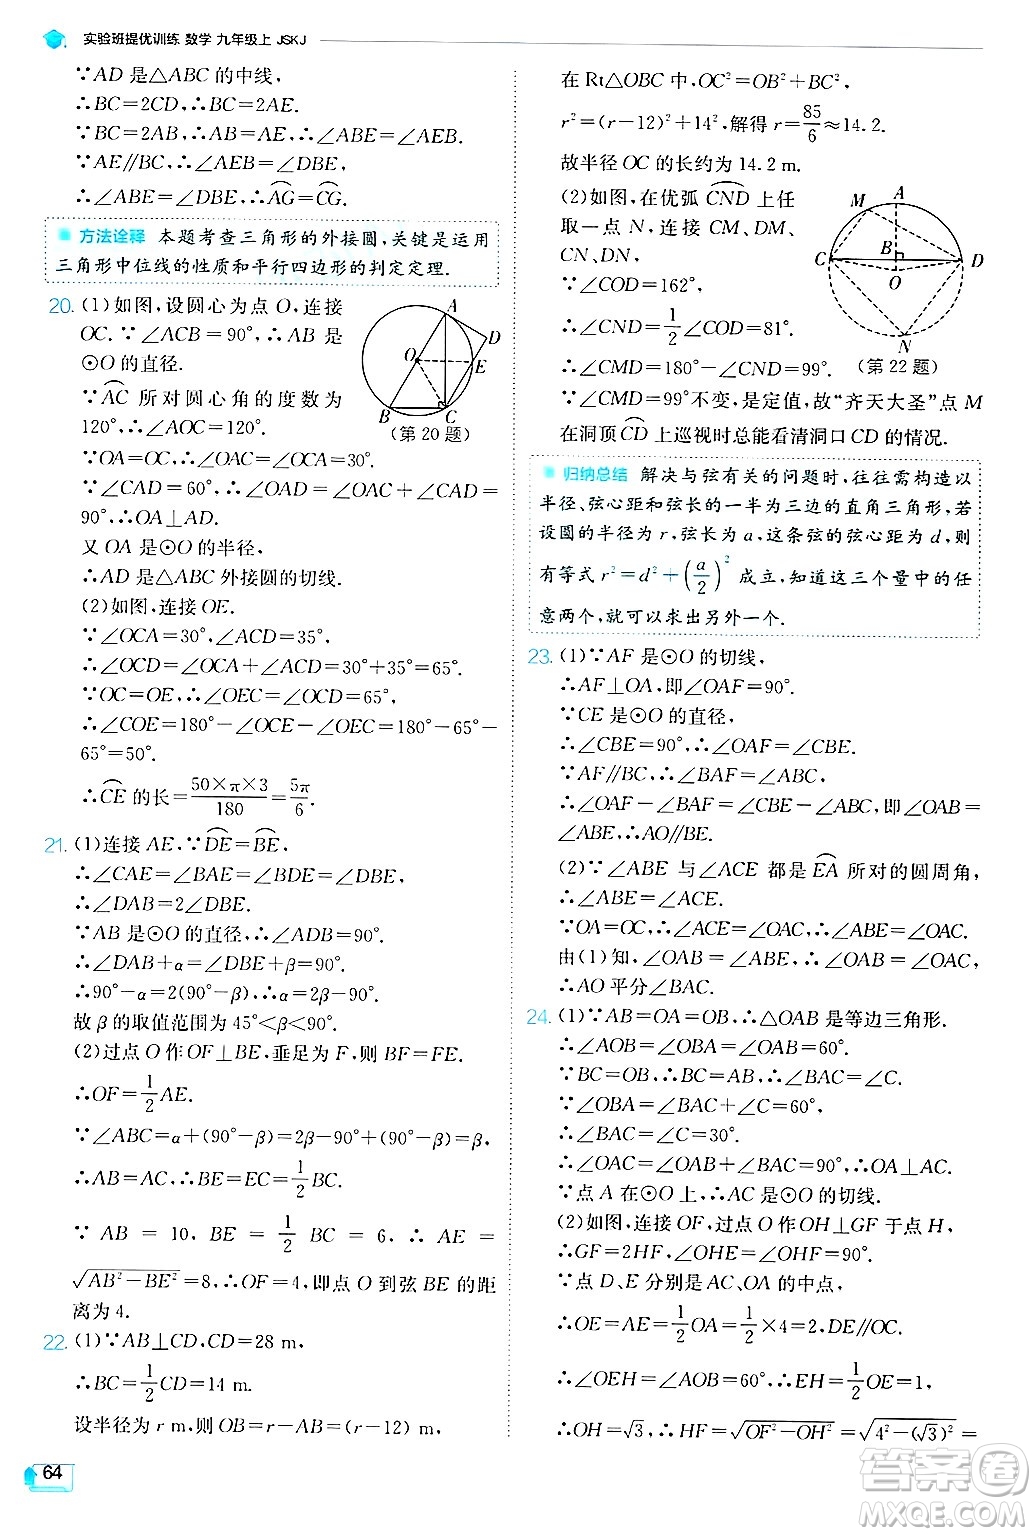 实验班提优训练 数学 九年级上 JSKJ
∵AD 是△ABC 的中线,
∴BC=2CD,∴BC=2AE.
∵BC=2AB,∴AB=AE,∴∠ABE=∠AEB.
∵AE//BC,∴∠AEB=∠DBE,
∴∠ABE=∠DBE,∴⌒AG=⌒CG.
方法诠释 本题考查三角形的外接圆,关键是运用
三角形中位线的性质和平行四边形的判定定理.
20. (1)如图,设圆心为点 O,连接
OC.∵∠ACB=90°,∴AB 是
⊙O 的直径.
∵⌒AC 所对圆心角的度数为
120°,∴∠AOC=120°.
∵OA=OC,∴∠OAC=∠OCA=30°.
∵∠CAD=60°,∴∠OAD=∠OAC+∠CAD=
90°,∴OA⊥AD.
又 OA 是⊙O 的半径,
∴AD 是△ABC 外接圆的切线.
(2)如图,连接 OE.
∵∠OCA=30°,∠ACD=35°,
∴∠OCD=∠OCA+∠ACD=30°+35°=65°.
∵OC=OE,∴∠OEC=∠OCD=65°,
∴∠COE=180°-∠OCE-∠OEC=180°-65°-
65°=50°.
∴⌒CE 的长=50×π×3/180=5π/6.
A
D
O
E
B
C
(第 20 题)
21. (1)连接 AE,∵⌒DE=⌒BE,
∴∠CAE=∠BAE=∠BDE=∠DBE,
∴∠DAB=2∠DBE.
∵AB 是⊙O 的直径,∴∠ADB=90°.
∴∠DAB+α=∠DBE+β=90°.
∴90°-α=2(90°-β),∴α=2β-90°.
故 β 的取值范围为 45°<β<90°.
(2)过点 O 作 OF⊥BE,垂足为 F,则 BF=FE.
∴OF=1/2AE.
∵∠ABC=α+(90°-β)=2β-90°+(90°-β)=β,
∴AB=AC,∴BE=EC=1/2BC.
∵ AB = 10, BE = 1/2 BC = 6, ∴ AE =
√(AB²-BE²)=8,∴OF=4,即点 O 到弦 BE 的距
离为 4.
22. (1)∵AB⊥CD,CD=28 m,
∴BC=1/2CD=14 m.
设半径为 r m,则 OB=r-AB=(r-12) m,
64
在 Rt△OBC 中,OC²=OB²+BC²,
r²=(r-12)²+14²,解得 r=85/6≈14.2.
故半径 OC 的长约为 14.2 m.
(2)如图,在优弧 ⌒CND 上任
取一点 N,连接 CM,DM,
CN,DN.
∵∠COD=162°,
∴∠CND=1/2∠COD=81°.
∴∠CMD=180°-∠CND=99°.
∵∠CMD=99°不变,是定值,故“齐天大圣”点 M
在洞顶⌒CD 上巡视时总能看清洞口 CD 的情况.
A
M
B
C
D
O
N
(第 22 题)
归纳总结 解决与弦有关的问题时,往往需构造以
半径、弦心距和弦长的一半为三边的直角三角形,若
设圆的半径为 r,弦长为 a,这条弦的弦心距为 d,则
有等式 r²=d²+(a/2)² 成立,知道这三个量中的任
意两个,就可以求出另外一个.
23. (1)∵AF 是⊙O 的切线,
∴AF⊥OA,即∠OAF=90°.
∵CE 是⊙O 的直径,
∴∠CBE=90°.∴∠OAF=∠CBE.
∵AF//BC,∴∠BAF=∠ABC,
∴∠OAF-∠BAF=∠CBE-∠ABC,即∠OAB=
∠ABE,∴AO//BE.
(2)∵∠ABE 与∠ACE 都是⌒EA 所对的圆周角,
∴∠ABE=∠ACE.
∵OA=OC,∴∠ACE=∠OAC,∴∠ABE=∠OAC.
由(1)知,∠OAB=∠ABE,∴∠OAB=∠OAC,
∴AO 平分∠BAC.
24. (1)∵AB=OA=OB,∴△OAB 是等边三角形.
∴∠AOB=∠OBA=∠OAB=60°.
∵BC=OB,∴BC=AB,∴∠BAC=∠C.
∵∠OBA=∠BAC+∠C=60°,
∴∠BAC=∠C=30°.
∴∠OAC=∠OAB+∠BAC=90°,∴OA⊥AC.
∵点 A 在⊙O 上,∴AC 是⊙O 的切线.
(2)如图,连接 OF,过点 O 作 OH⊥GF 于点 H,
∴GF=2HF,∠OHE=∠OHF=90°.
∵点 D、E 分别是 AC、OA 的中点,
∴OE=AE=1/2OA=1/2×4=2,DE//OC.
∴∠OEH=∠AOB=60°,∴HE=1/2OE=1,
∴OH=√3.∴HF=√(OF²-OH²)=√(4²-(√3)²)=
答案圈
MXQE.COM